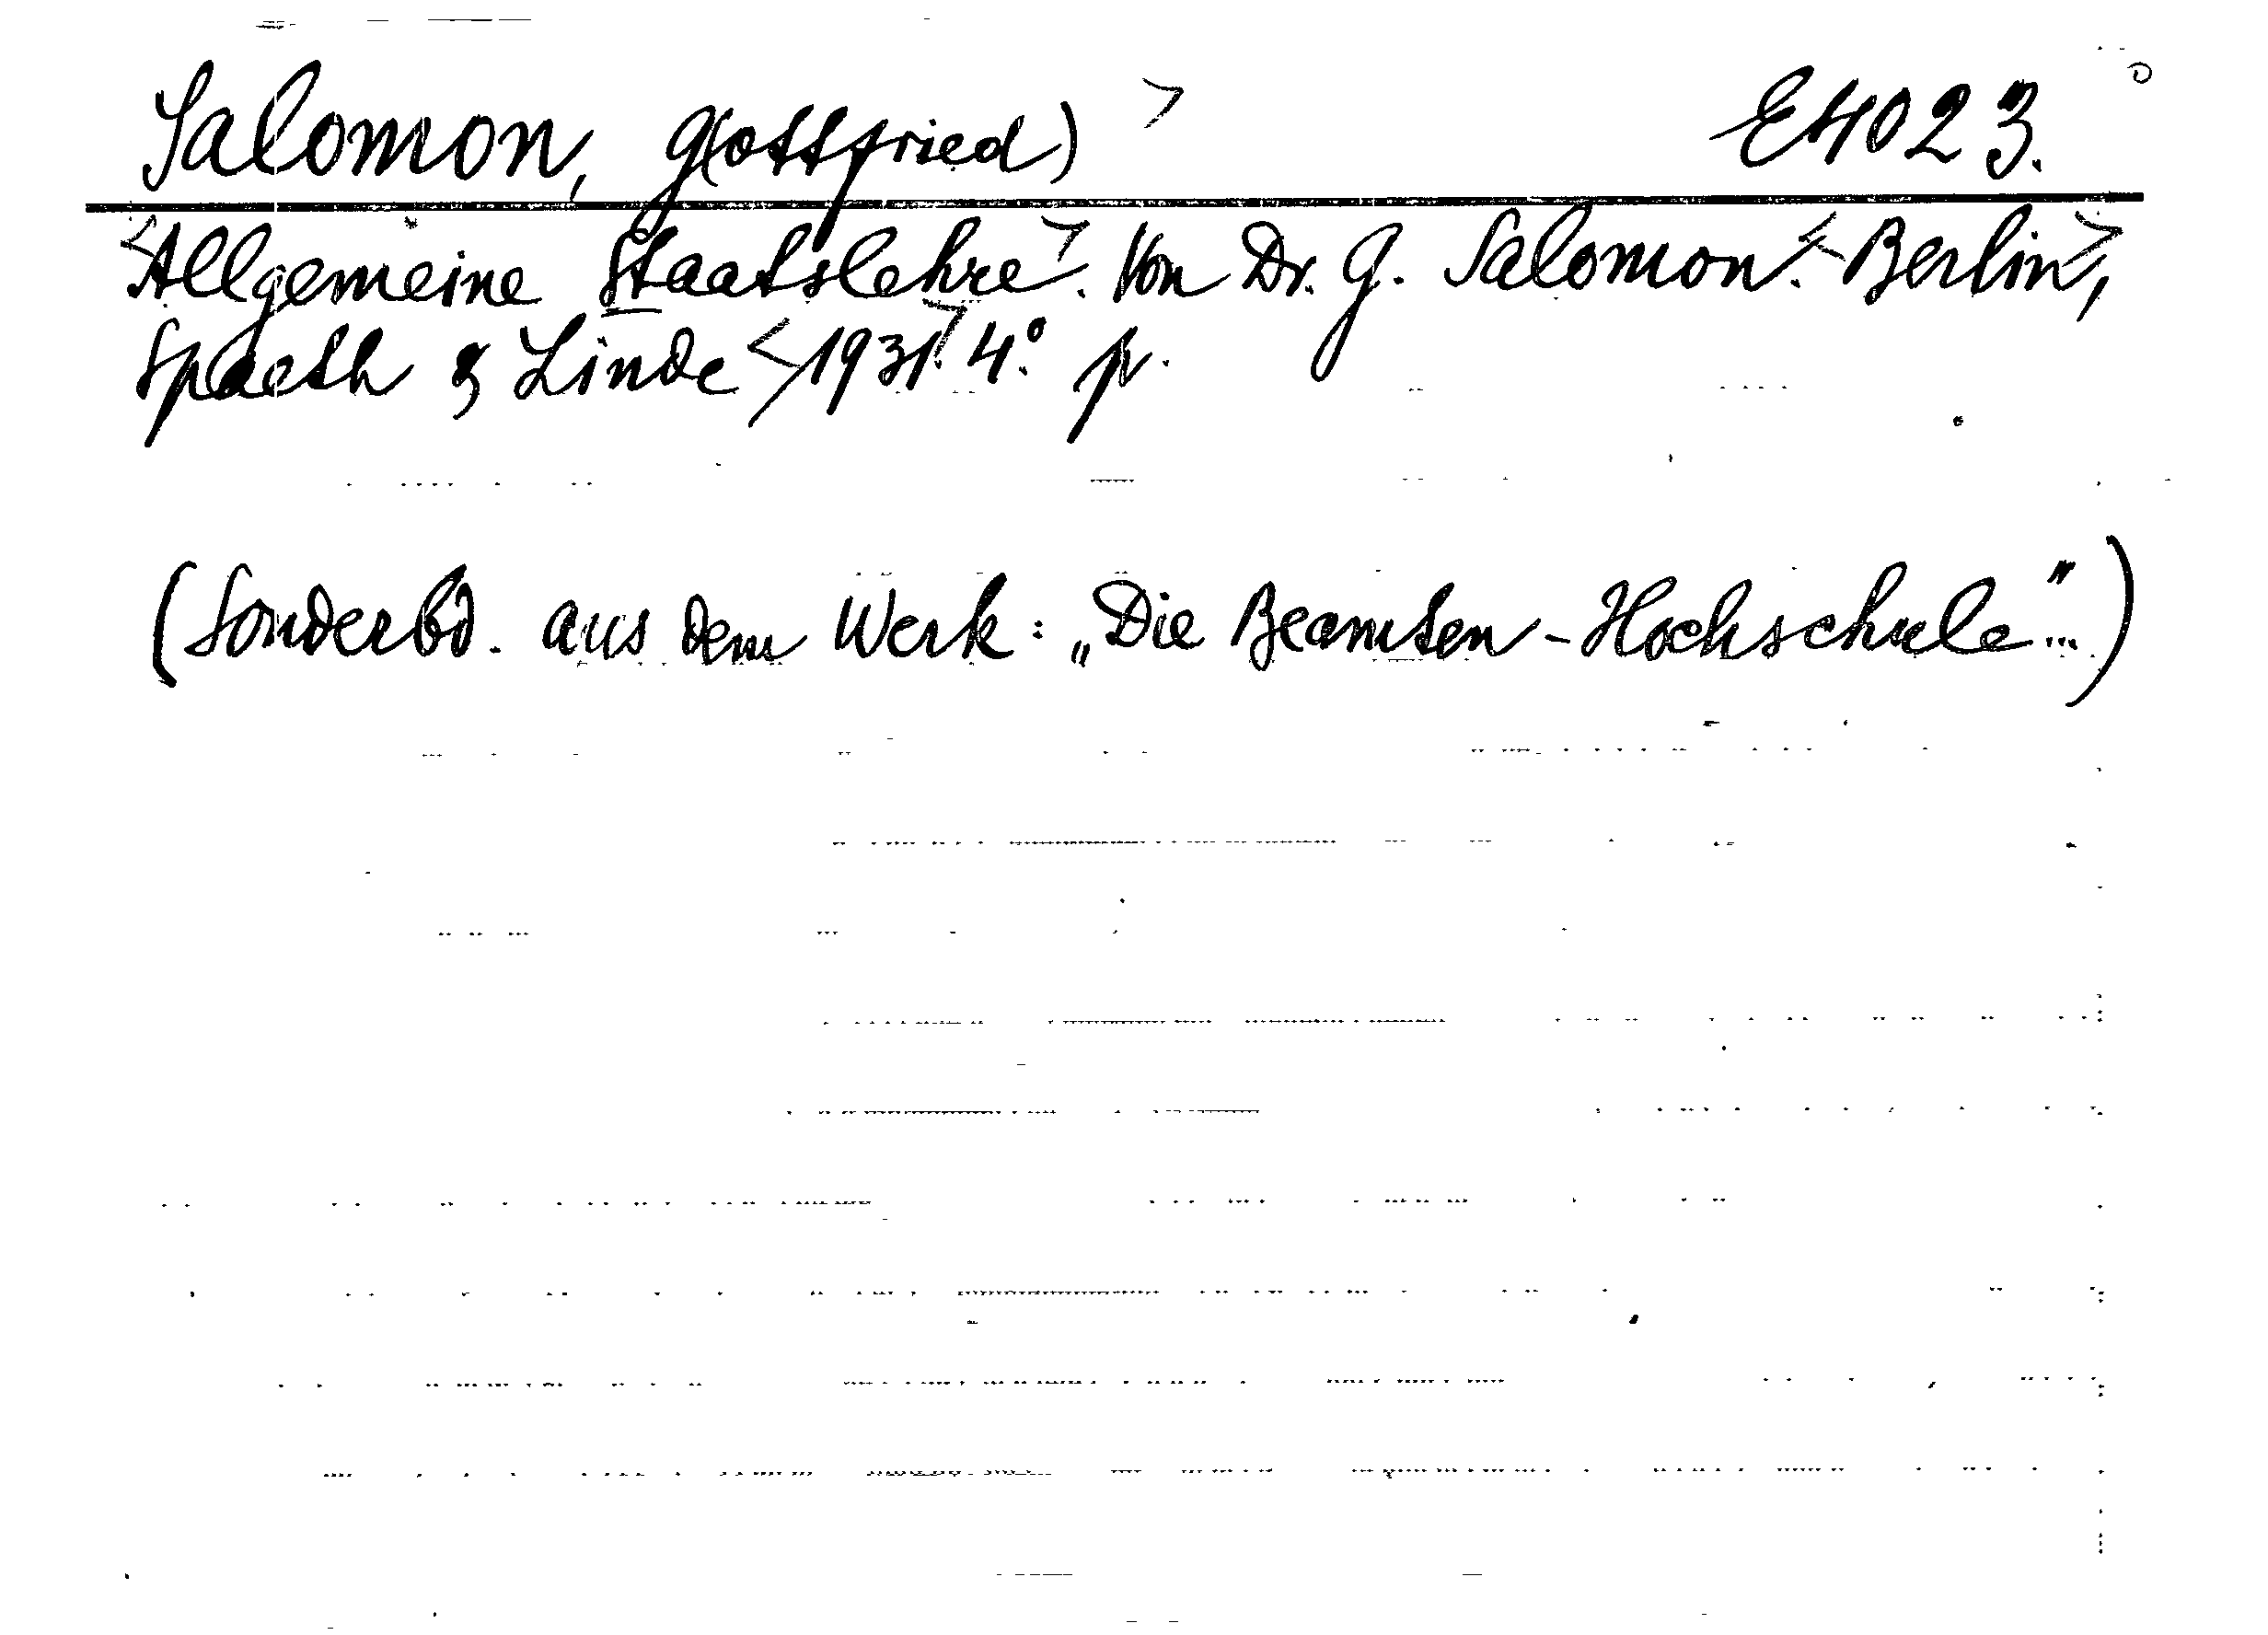 Salomon, G(ottfried) > E4023.
<Allgemeine Staatslehre>. Von Dr. G. Salomon. <Berlin>,
Spaeth & Linde <1931>. 4° p.
(Sonderbd. aus dem Werk: „Die Beamten-Hochschule"...)